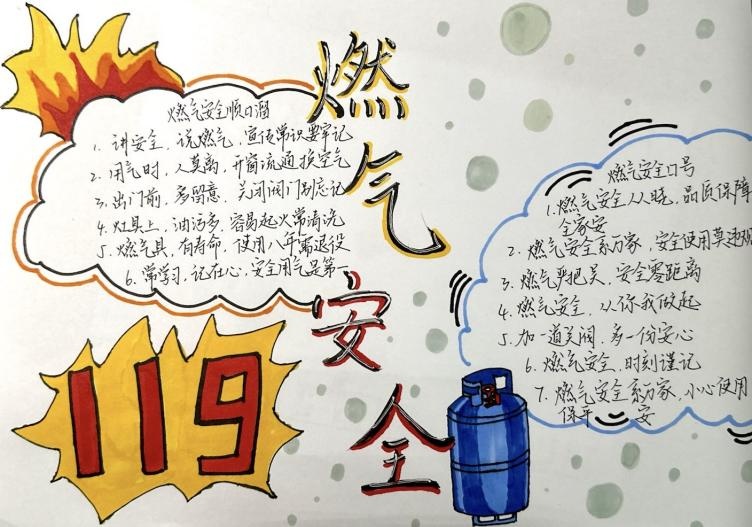 燃气安全
燃气安全顺口溜
1. 讲安全，说燃气，宣传常识要牢记
2. 用气时，人莫离，开窗流通换空气
3. 出门前，多留意，关闭阀门别忘记
4. 灶具上，油污多，容易起火常清洗
5. 燃气具，有寿命，使用八年需退役
6. 常学习，记在心，安全用气是第一
119
燃气安全口号
1. 燃气安全人人晓，品质保障
全家安
2. 燃气安全系万家，安全使用莫违规
3. 燃气严把关，安全零距离
4. 燃气安全，从你我做起
5. 加一道关阀，多一份安心
6. 燃气安全，时刻谨记
7. 燃气安全系万家，小心使用
保平安